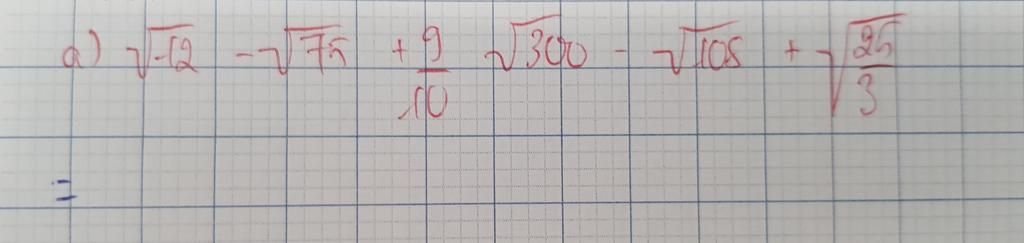 a) √12 - √75 + 9/10 √300 - √108 + √25/3
=